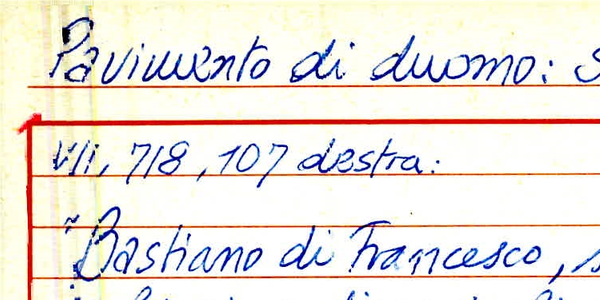 Pavimento di duomo:
VII, 718, 107 destra:
"Bastiano di Francesco,